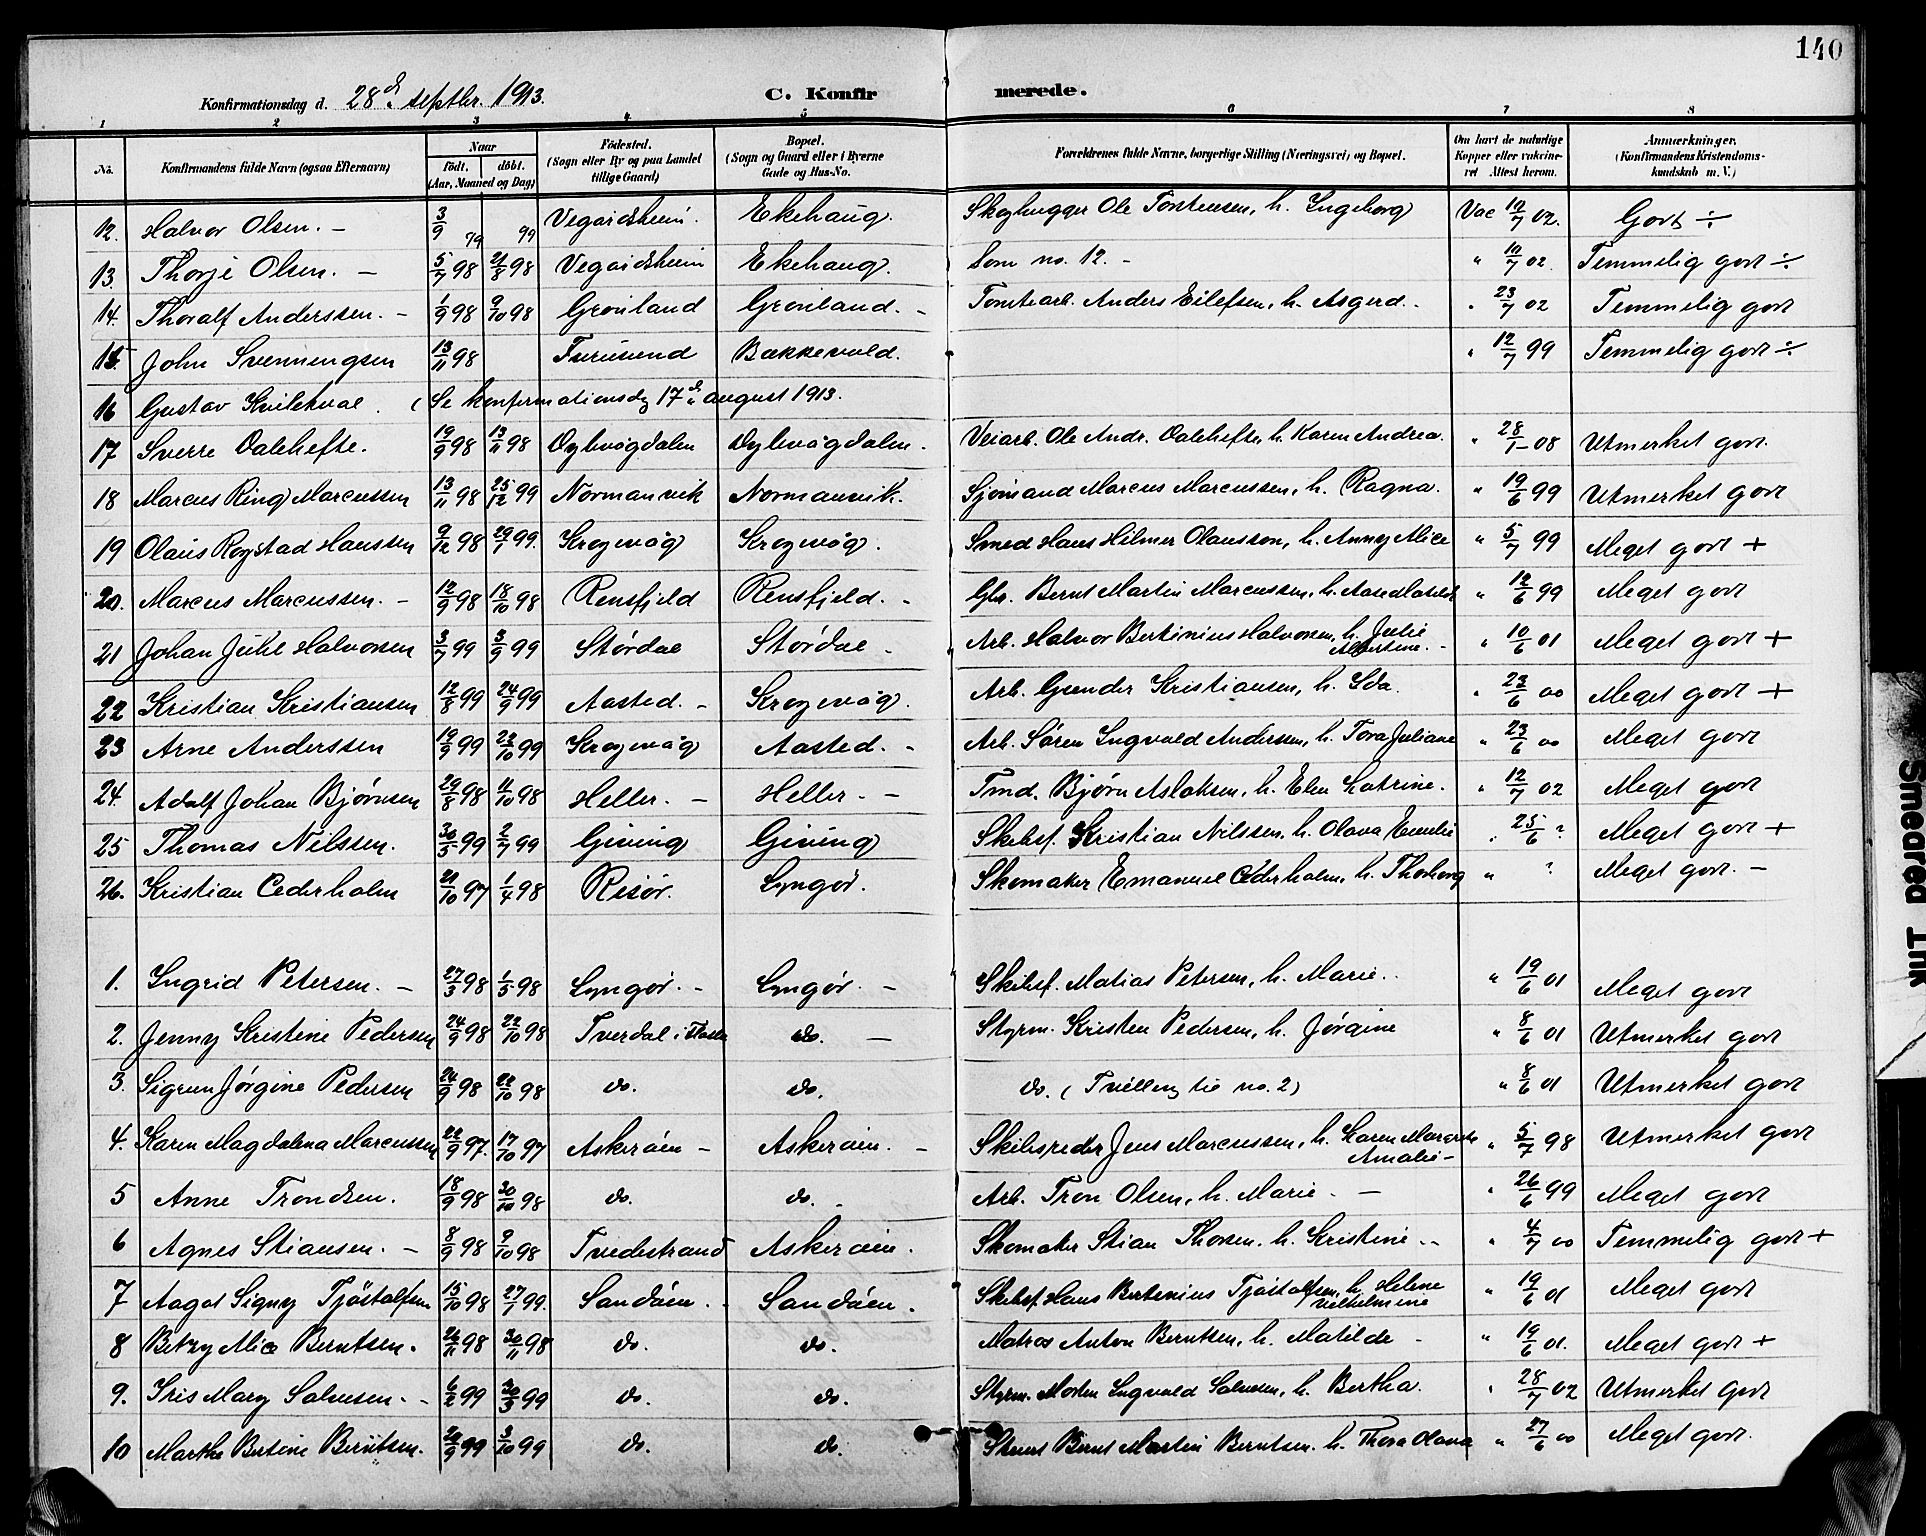 140
Konfirmationsdag d. 28d. septbr. 1913.
C. Konfirmerede.
1 2 3 4 5 6 7 8
No. Konfirmandens fulde Navn (ogsaa Efternavn) Naar født. døbt. (Aar, Maaned og Dag) Fødested. (Sogn eller By og paa Landet tillige Gaard) Bopæl. (Sogn og Gaard eller i Byerne Gade og Hus-No. Forældrenes fulde Navne, borgerlige Stilling (Næringsvei) og Bopæl. Om havt de naturlige Kopper eller vaccineret Attest herom. Anmærkninger. (Konfirmandens Kristendomskundskab m. V.)
12. Halvor Olsen. – 3/9 99 99 Vegaardsheim. Ekehaug. Skoghugger Ole Torstensen, h. Ingeborg Vac 10/7 02. Godt ÷
13. Thorje Olsen. – 5/7 98 21/8 98 Vegardsheim Ekehaug. Som no. 12. – " 10/7 02. Temmelig godt ÷
14. Thoralf Anderssen. – 1/9 98 9/10 98 Grønland Grønland. – Tomtearb. Anders Eilefsen, h. Asgerd. " 23/7 02 Temmelig godt
15. John Svenningsen 13/11 98 Furusund Bakkevold. " 12/7 99 Temmelig godt ÷
16 Gustav Kvilekval. (Se konfirmationsdag 17d. august 1913.
17 Sverre Dalehefte. 19/9 98 13/11 98 Dybvågdalen Dybvågdalen. Veiarb. Ole Andr. Dalehefte, h. Karen Andrea. " 28/1 08 Utmerket godt.
18 Marcus Ring Marcussen 13/11 98 25/12 99 Normanvik Normanvik. Sjømand Marcus Marcussen, h. Ragna. " 19/6 99 Utmerket godt
19 Olaus Rogstad Hanssen 9/12 98 29/1 99. Krogevåg Krogevåg. Smed Hans Hilmer Olaussen, h. Anny Alice " 5/7 99 Meget godt +
20. Marcus Marcussen. – 12/9 98 18/10 98 Rensfjeld Rensfjeld. – Bernt Martin Marcussen, h. Aase " 12/6 99 Meget godt
21 Johan Juhl Halvorsen 3/7 99 3/9 99 Størdal Størdal – Arb. Halvor Bertinius Halvorsen, h. Julie Albertine. – " 10/6 01 Meget godt +
22 Kristian Kristiansen 12/8 99 24/9 99 Aasted. – Krogevåg. Arb. Gunder Kristiansen, h. Ida. " 23/6 00 Meget godt +
23 Arne Anderssen 19/9 99 22/10 99 Krogevåg Aasted. – Arb. Søren Ingvald Andersen, h. Tora Juliane " 23/6 00 Meget godt
24. Adolf Johan Bjørnsen 29/8 98 11/10 98 Heller. – Heller. – Tmd. Bjørn Aslaksen, h. Elen Katrine. " 12/7 02 Meget godt
25 Thomas Nilssen. 30/5 99 2/7 99 Giving Giving Skibsf. Kristian Nilssen, h. Olava Emelie " 25/6 ? Meget godt +
26. Kristian Cederholm 21/10 97 1/4 98 Risør. Lyngør. Skomaker Emanuel Cederholm, h. Thorborg " ? Meget godt. –
1. Ingrid Petersen. – 27/3 98 1/5 98 Lyngør. – Lyngør. – Skibsf. Matias Petersen, h. Marie. " 19/6 01 Meget godt
2. Jenny Kristine Pedersen 24/9 98 22/10 98 Tverdal i Flosta do. – Styrm. Kristen Pedersen, h. Jørgine " 8/6 01 Utmerket godt
3. Sigrun Jørgine Pedersen 24/9 98 22/10 98 do. do. do. (Tvilling til no. 2) " 8/6 01 Utmerket godt
4. Karen Magdalena Marcussen 22/9 97. 17/10 97 Askerøien – Askerøien. – Skibsreder Jens Marcussen, h. Karen Margrete Amalie – " 5/7 98 Utmerket godt
5 Anne Trondsen. 18/9 98 30/10 98 do. do. Arb. Tron Olsen, h. Marie. – " 26/6 99 Meget godt
6 Agnes Stiansen. – 8/9 98 9/10 98 Tvedestrand Askerøien. Skomaker Stian Thorsen. h. Kristine. " 4/7 00 Temmelig godt +
7 Aagot Signy Tjøstolfsen 15/10 98 27/1 99. Sandøien. Sandøien. Skibsf. Hans Bertinius Tjøstolfsen, h. Helene Vilhelmine " 19/6 01 Meget godt
8 Betzy Alice Berntsen. 26/11 98 30/11 98 do. do. Matros Anton Berntsen, h. Matilde – " 19/6 01. Meget godt +
9. Iris Mary Salvesen. – 6/2 99 30/3 99 do. do. Styrm. Morten Ingvald Salvesen, h. Bertha. " 28/7 02 Utmerket godt
10 Marthe Bertine Berntsen. 20/9 99 3/10 99 do. do. Bernt Martin Berntsen. h. Thora Olava " 27/6 00 Meget godt.
Smeared Ink